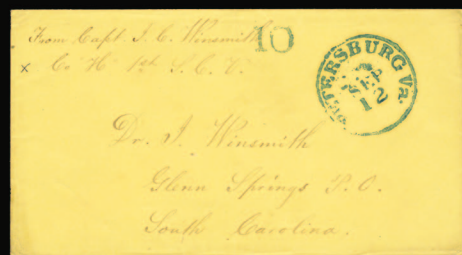 From Capt. J. C. Winsmith
10
x Co "H" 1st S. C. V.
PETERSBURG Va.
12
Dr. J. Winsmith
Glenn Springs P. O.
South Carolina.